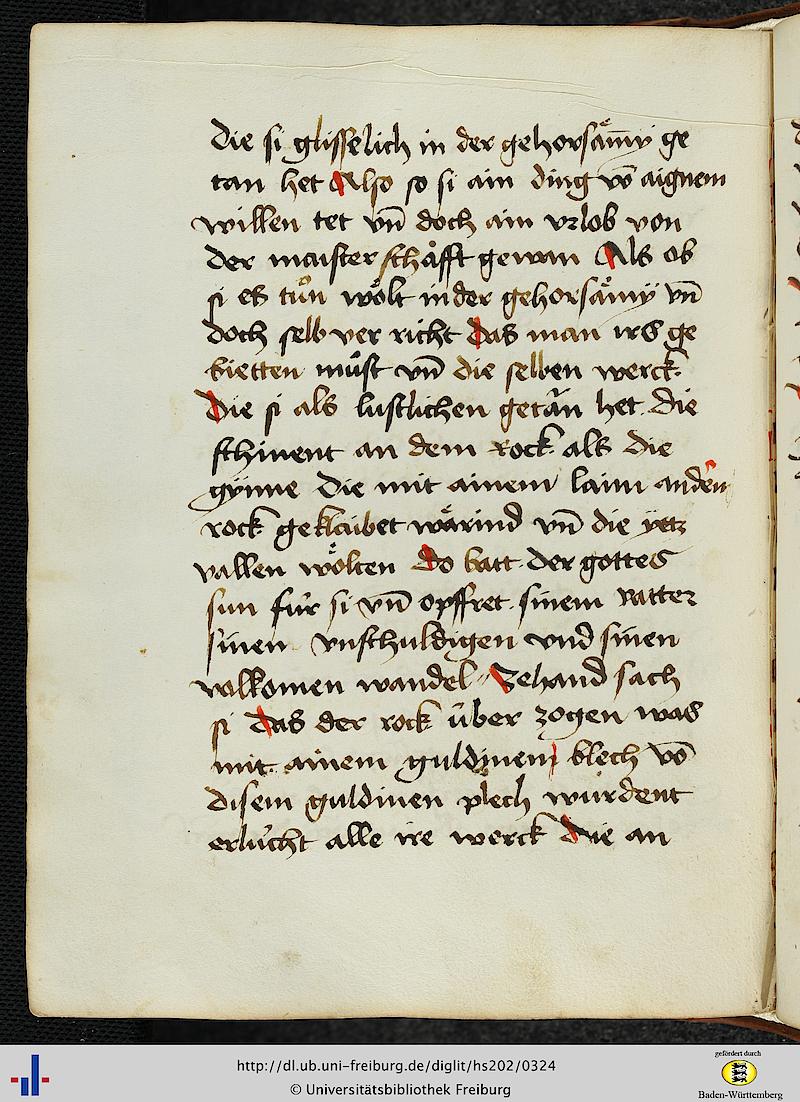 die si glisselich in der gehorsam̄y ge
tan het Also so si ain ding vō aignem
willen tet vn̄ doch ain vrlob von
der maisterschåfft gewan Als ob
si es tůn wo̊lt in der gehorsamy vn̄
doch selb ver richt das man irs ge
bietten můst vn̄ die selben werck
Die si als lustlichen getän het die
schinent an dem rock als die
gÿnne die mit ainem laim an den
rock geklaibet wärind vn̄ die yetz
vallen wo̊lten do batt der gottes
sun für si vn̄ opffret sinem vatter
sinen vnschuldigen vnd sinen
volkomen wandel Zehand sach
si das der rock über zogen was
mit ainem guldinem blech vō
disem guldinen plech wurdent
erlücht alle ire werck die an
http://dl.ub.uni-freiburg.de/diglit/hs202/0324
© Universitätsbibliothek Freiburg
gefördert durch
Baden-Württemberg